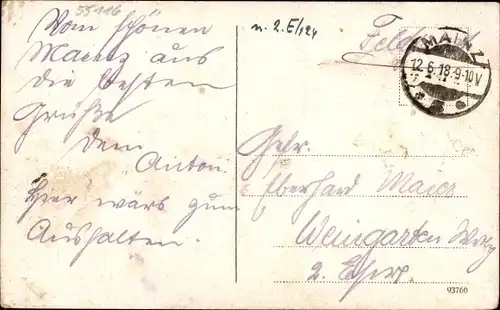 55116
Vom schönen
Mainz aus
die besten
Grüße
Dein
Anton.
Hier wärs zum
Aushalten.
n. 2. E/124
Feldp
MAINZ
12.6.18.9-10V
Gefr.
Eberhard Maier
Weingarten Wttbg
2.
93760